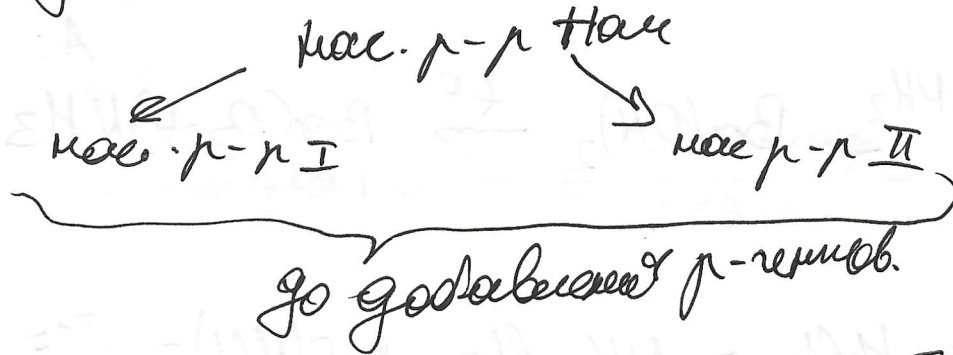 нас. р-р Нач
нас. р-р I нас р-р II
до добавления р-гентов.